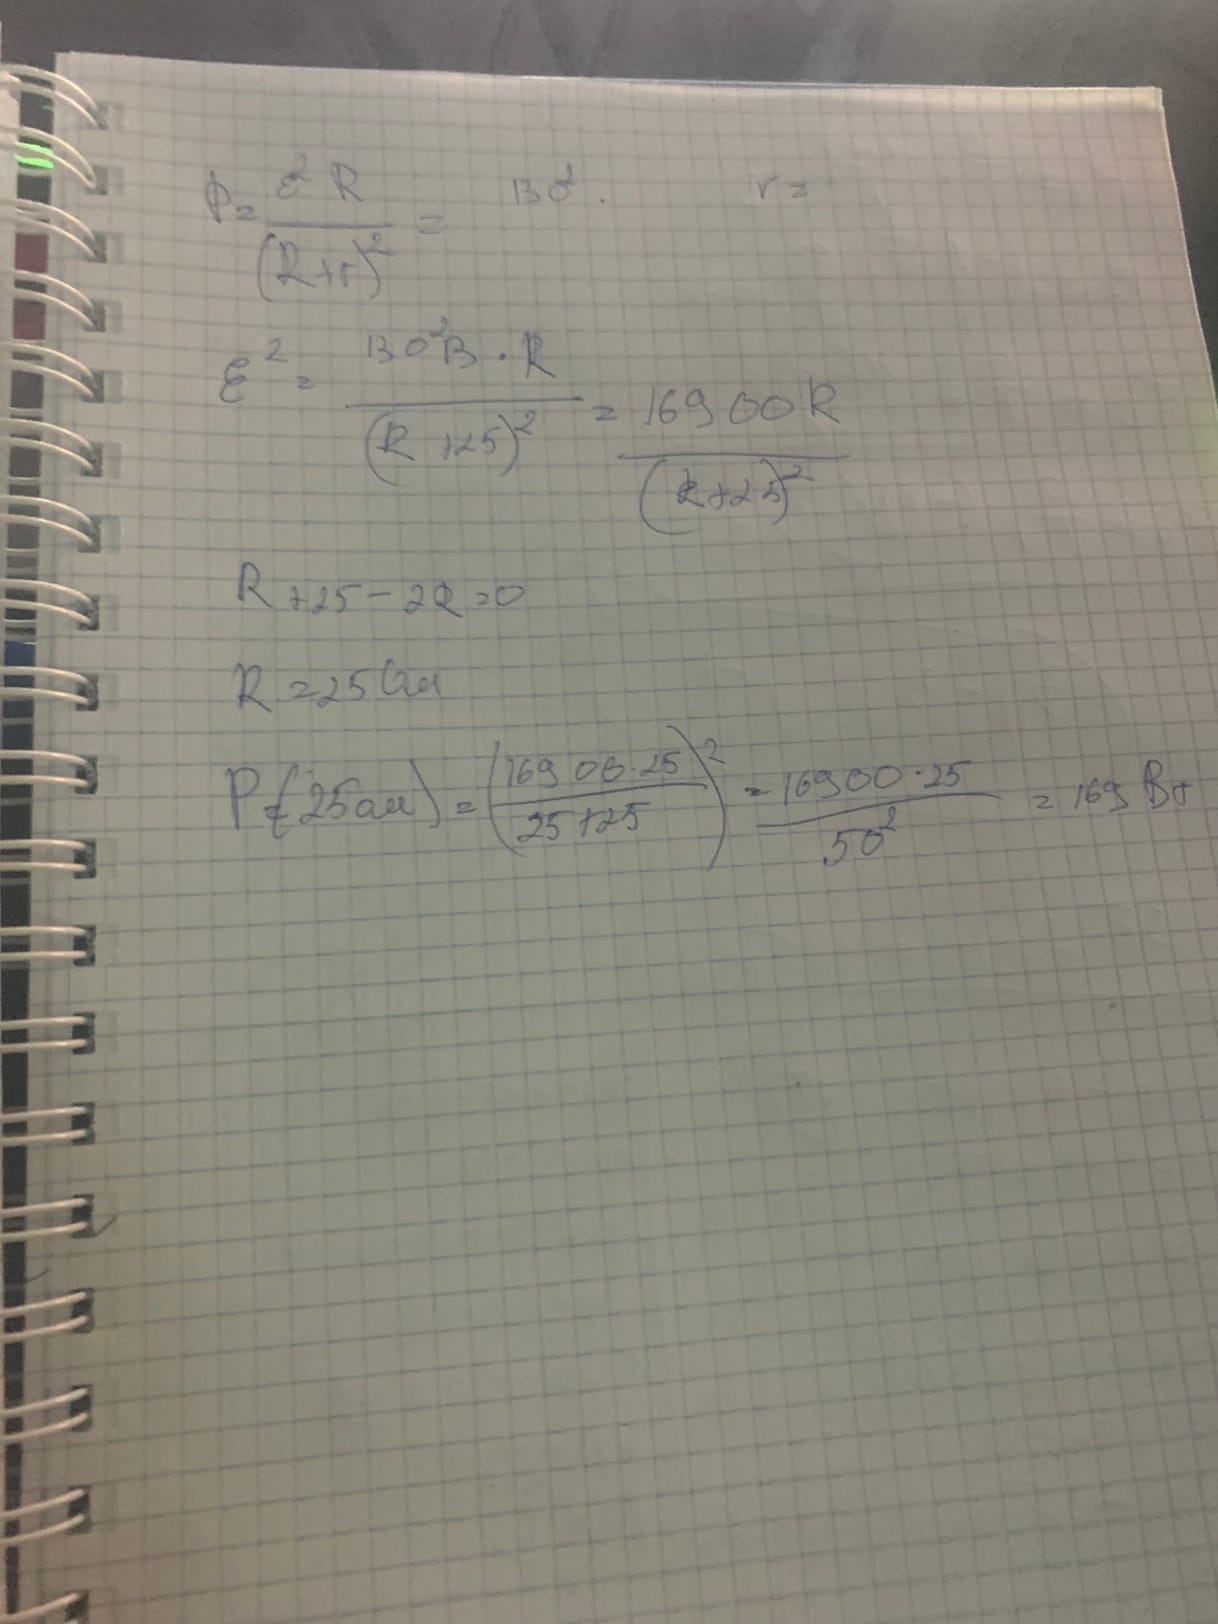 P = ε² R / (R + r)² = 130². r =
ε² = 130²В · R / (R + 25)² = 16900 R / (R + 25)²
R + 25 - 2R = 0
R = 25 Ом
P = (25 Ом) = (16900 · 25 / 25 + 25)² = 16900 · 25 / 50² = 169 Вт